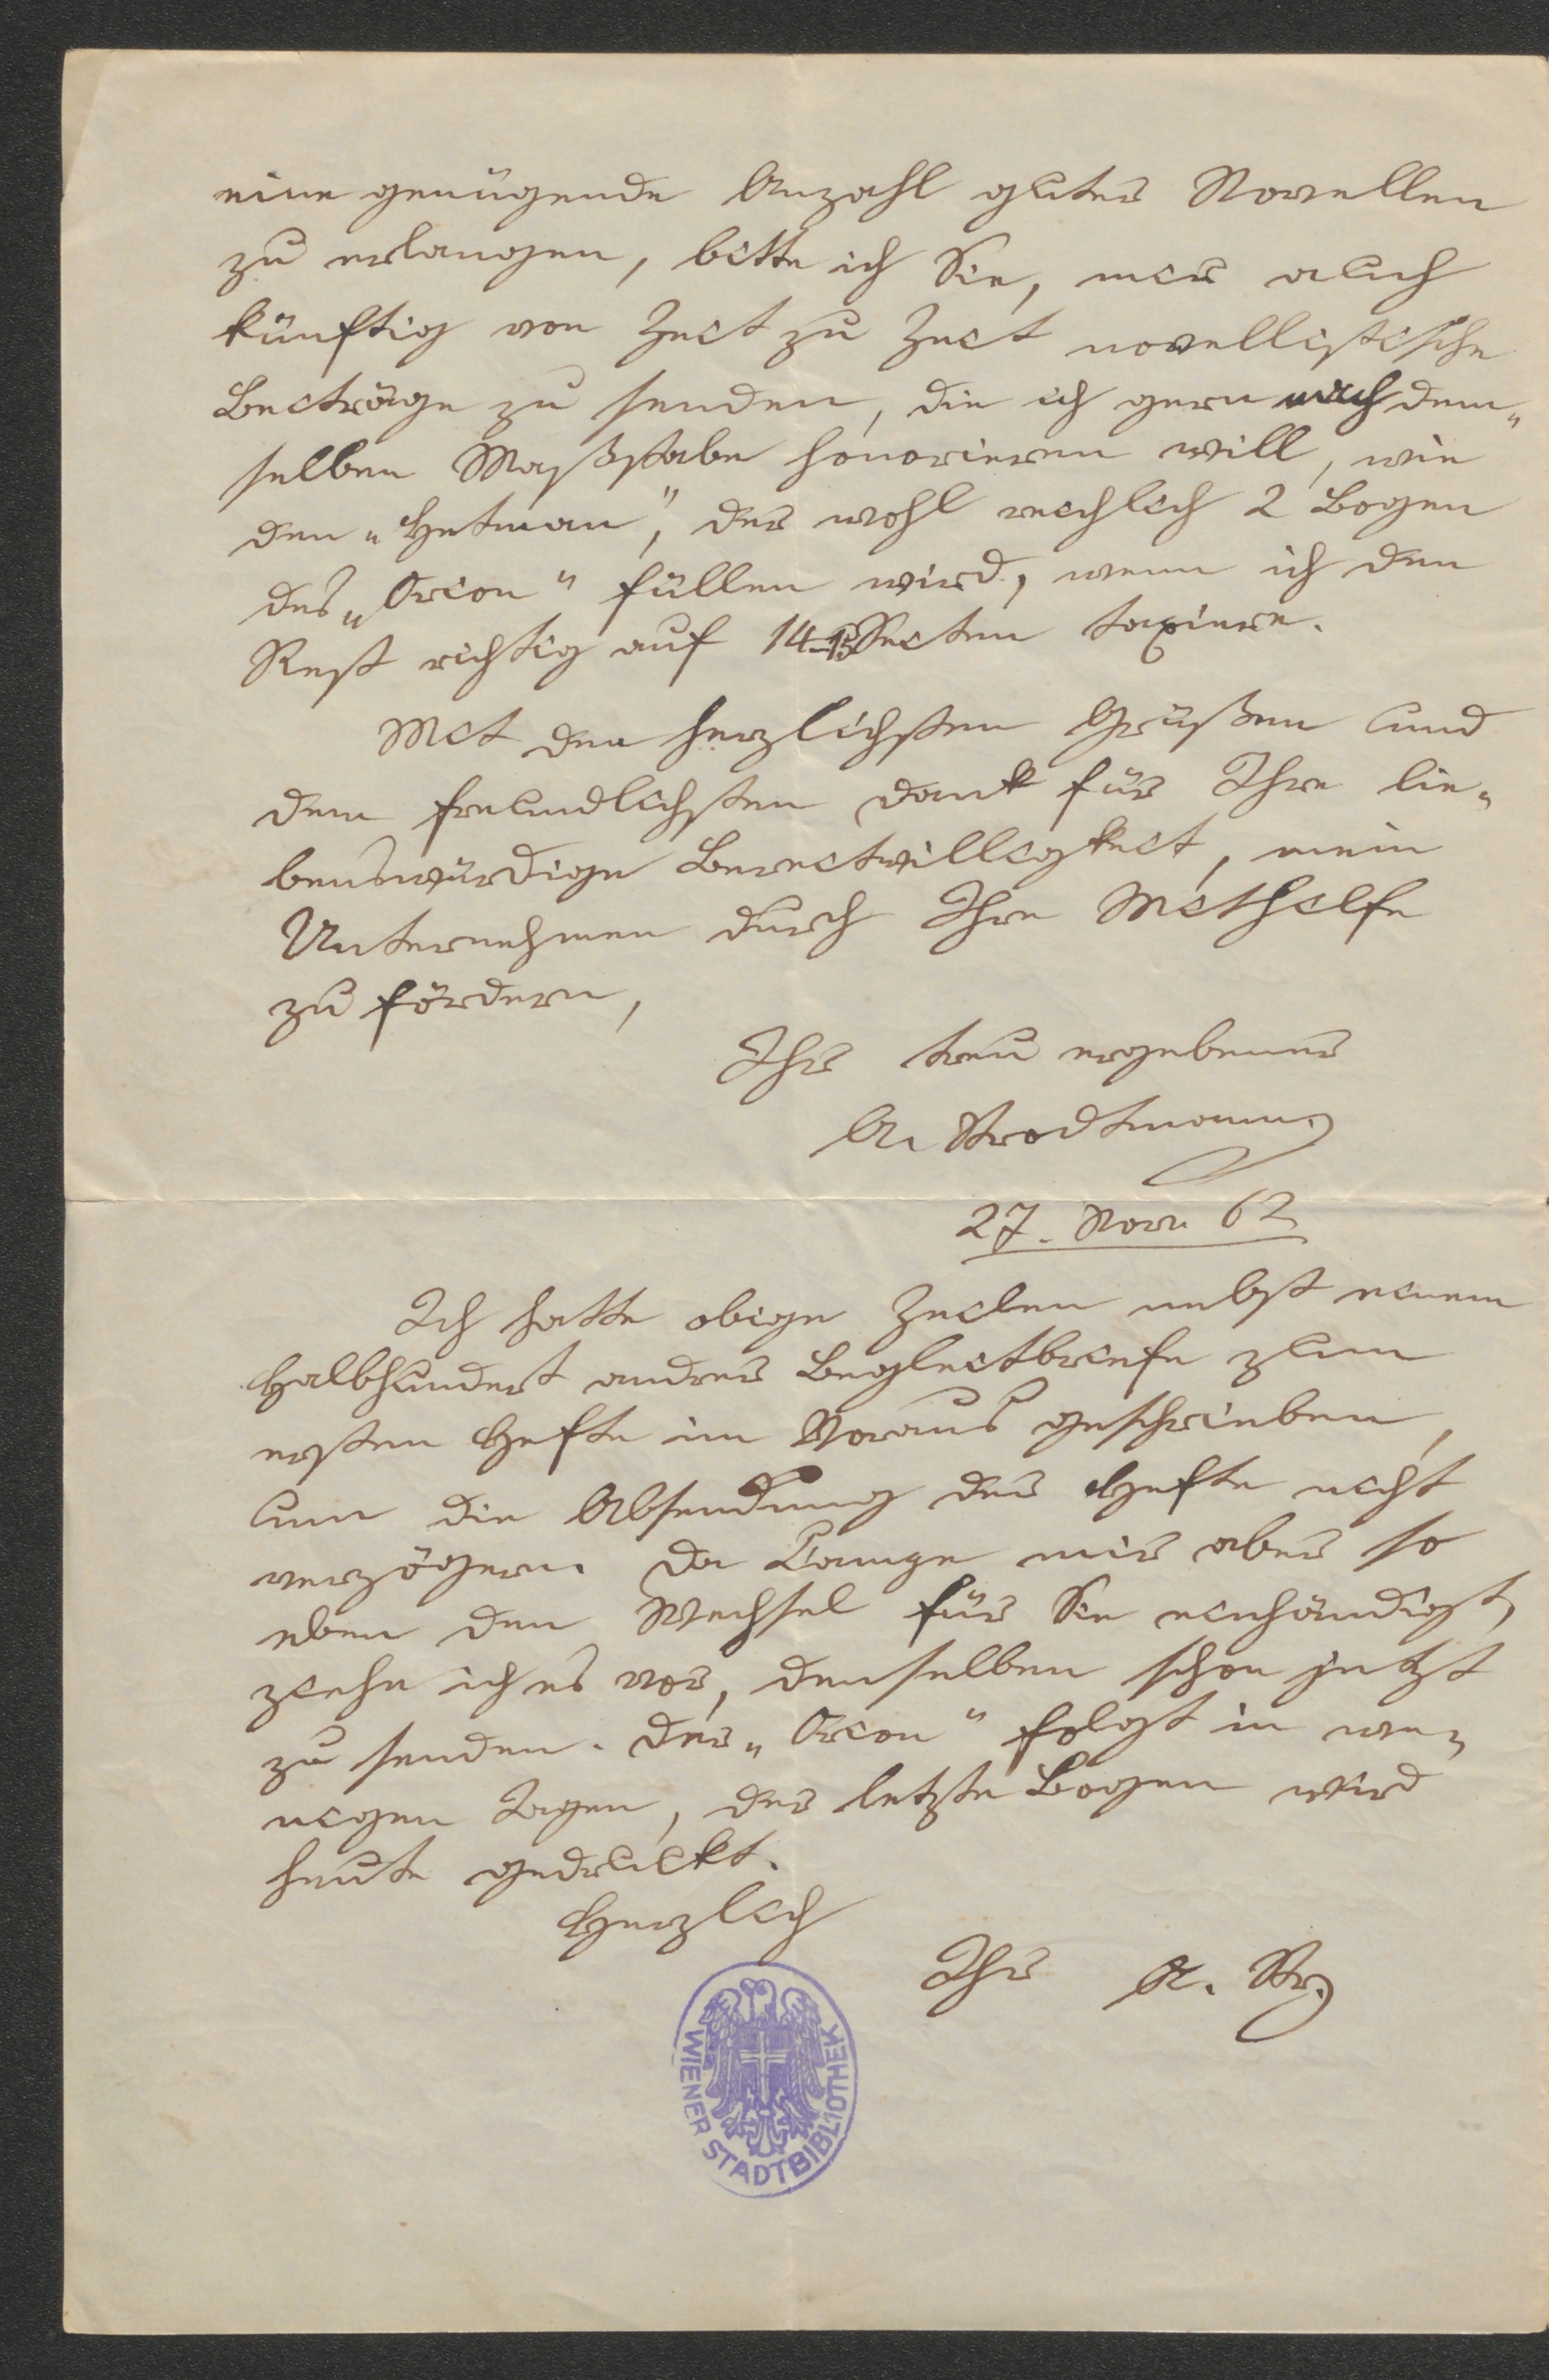 eine genügende Anzahl guter Novellen
zu erlangen, bitte ich Sie, mir auch
künftig von Zeit zu Zeit novellistische
Beiträge zu senden, die ich gern nach dem-
selben Maßstabe honorieren will, wie
den „Hetman“, der wohl reichlich 2 Bogen
des „Orion“ füllen wird, wenn ich den
Rest richtig auf 14–15 Seiten taxiere.
Mit den herzlichsten Grüßen und
dem freundlichsten Dank für Ihre lie-
benswürdige Bereitwilligkeit, mein
Unternehmen durch Ihre Mithilfe
zu fördern,
Ihr treu ergebener
A. Strodtmann.
27. Nov. 62
Ich hatte obige Zeilen nebst einem
Halbhundert andrer Begleitbriefe zum
ersten Hefte im Voraus geschrieben,
um die Absendung der Hefte nicht
verzögern. Da Campe mir aber so
eben den Wechsel für Sie einhändigt,
ziehe ich es vor, denselben schon jetzt
zu senden. Der „Orion“ folgt in we-
nigen Tagen, der letzte Bogen wird
heute gedruckt.
Herzlich
Ihr A. Str.
WIENER STADTBIBLIOTHEK